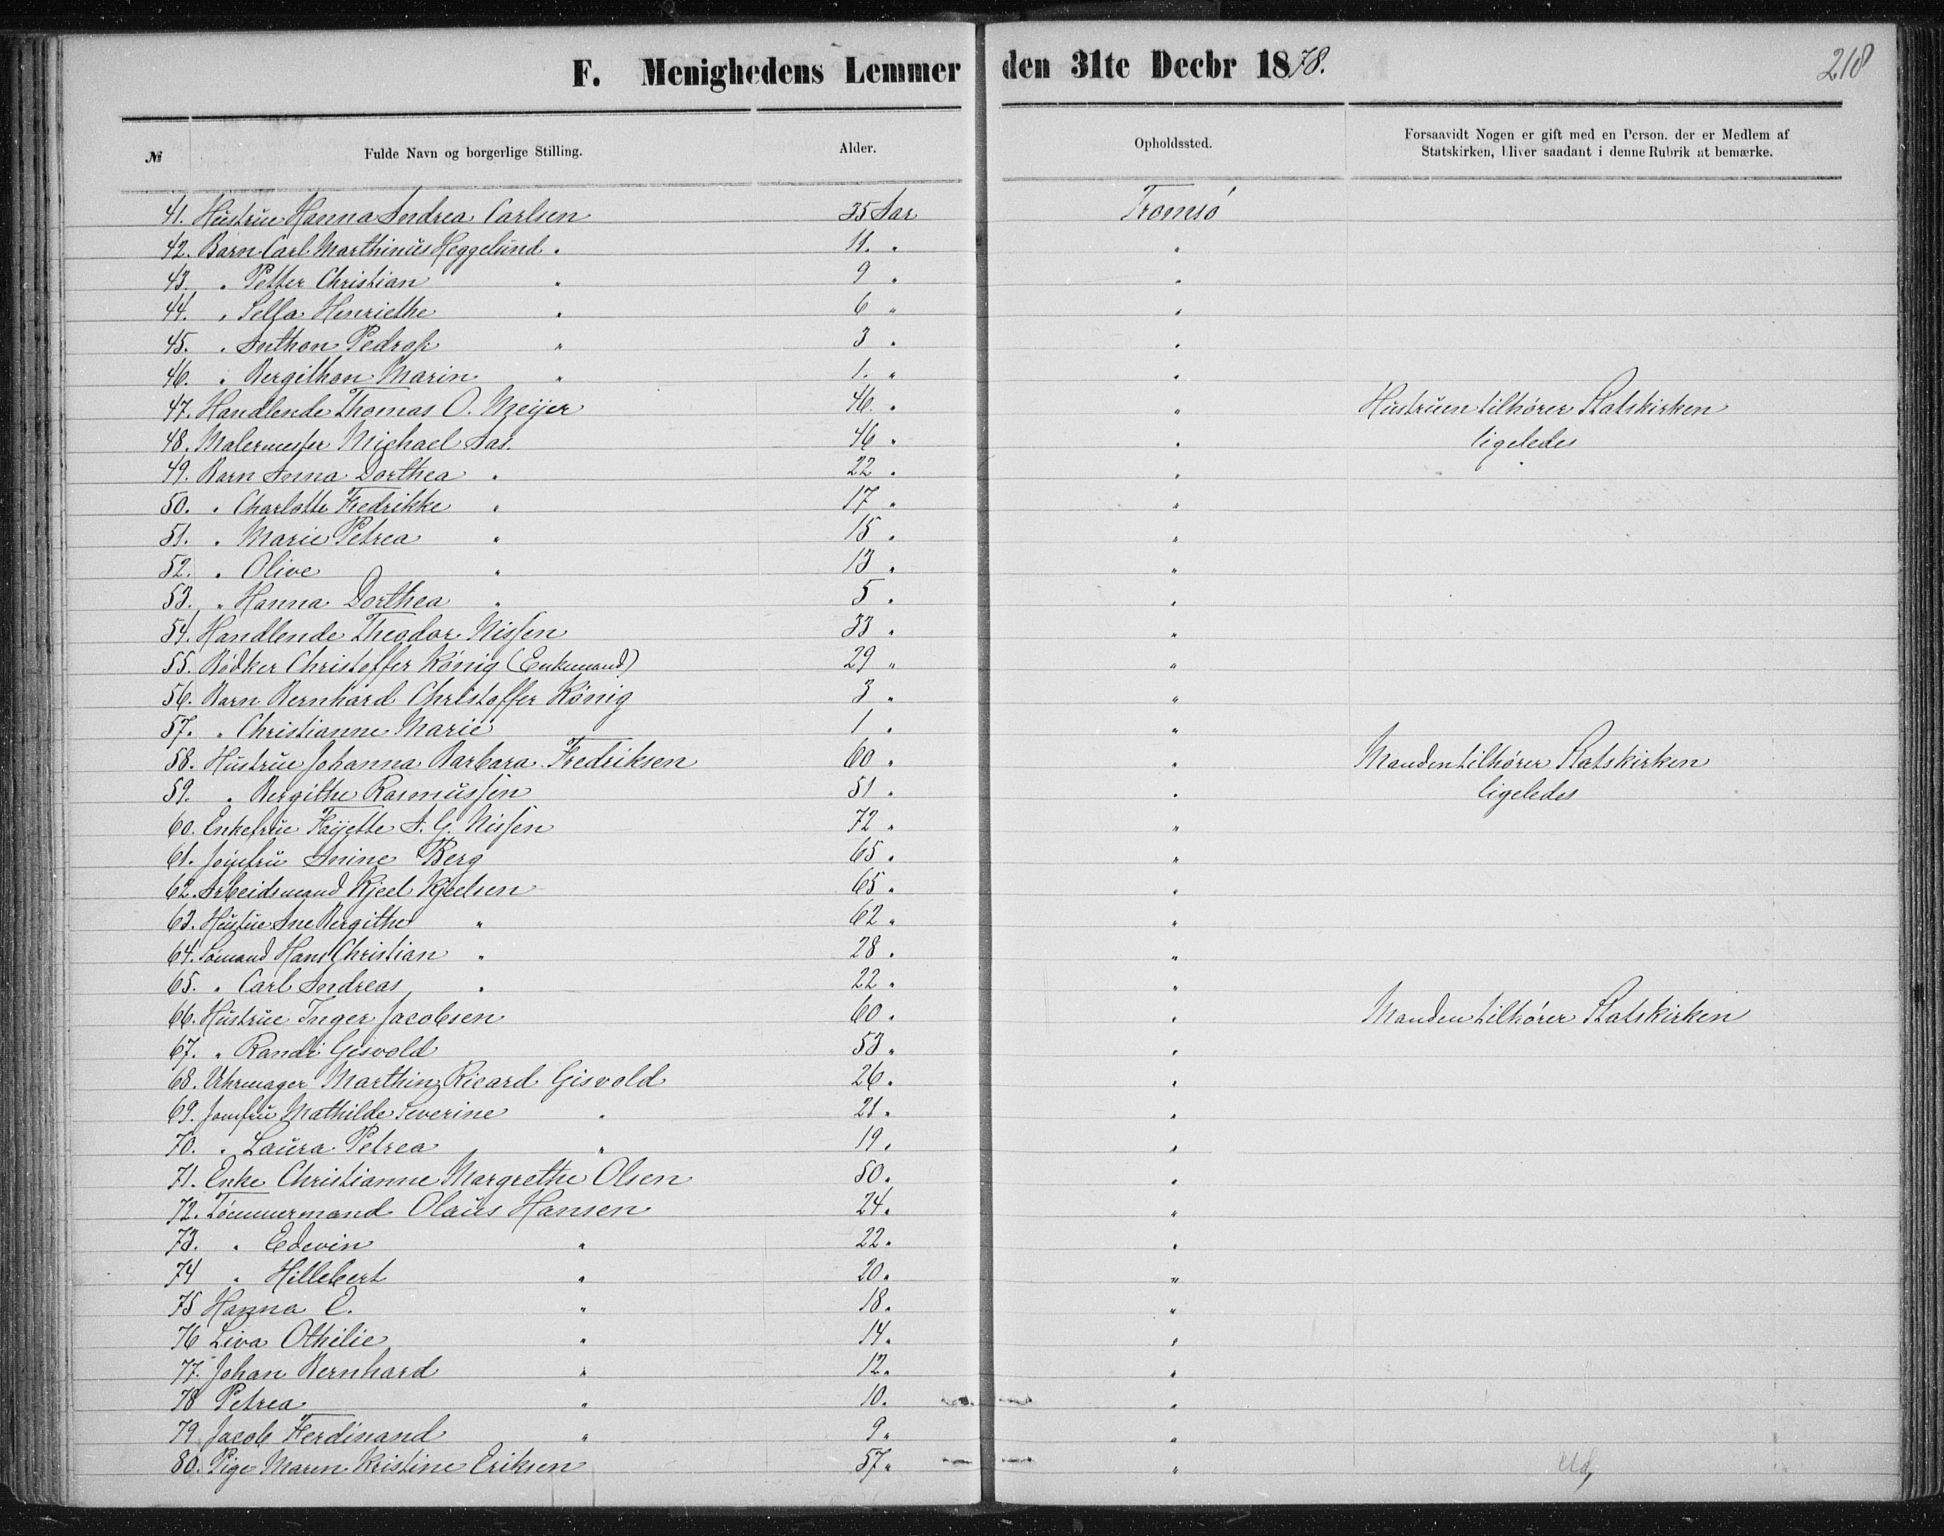 F. Menighedens Lemmer den 31te Decbr 1878. 218
№ Fulde Navn og borgerlige Stilling. Alder. Opholdssted. Forsaavidt Nogen er gift med en Person, der er Medlem af
Statskirken, bliver saadant i denne Rubrik at bemærke.
41. Hustrue Hanna Andrea Carlsen 35 Aar Tromsø
42. Barn Carl Marthinus Heggelund " 11. " "
43. " Petter Christian " 9 " "
44. " Selfa Henriethe " 6 " "
45. " Anthon Pedrofi " 3 " "
46. " Bergithon Marin " 1. " "
47. Handlende Thomas O. Meijer 46. " " Hustruen tilhører Statskirken
48. Malermester Michael Aas. 46 " " ligeledes
49. Barn Anna Dorthea " 22 " "
50. " Charlotte Fredrikke " 17 " "
51. " Marie Petrea " 15 " "
52. " Olive " 13 " "
53. " Hanna Dorthea " 5 " "
54. Handlende Theodor Nissen 33 " "
55. Bødker Christoffer König (Enkemand) 29 " "
56. Barn Bernhard Christoffer König 3 " "
57. " Christianne Marie 1 " "
58. Hustrue Johanna Barbara Fredriksen 60 " " Manden tilhører Statskirken
59. " Bergithe Rasmussen 51 " " ligeledes
60. Enkefrue Fayette A. G. Nissen 72 " "
61. Jomfru Anine Berg 65 " "
62. Arbeidsmand Kjeel Kjeelsen 65 " "
63. Hustrue Ane Bergithe " 62 " "
64. Sømand Hans Christian " 28 " "
65. " Carl Andreas " 22 " "
66. Hustrue Inger Jacobsen 60 " " Manden tilhører Statskirken
67. " Randi Gisvold 53 " "
68. Uhrmager Marthin Ricard Gisvold 26 " "
69. Jomfru Mathilde Severine " 21 " "
70. " Laura Petrea " 19 " "
71. Enke Christianne Margrethe Olsen 50 " "
72. Tømmermand Olaus Hansen 24 " "
73. " Edevin " 22 " "
74 " Hillebert " 20 " "
75 Hanna E. " 18 " "
76 Liva Othilie " 14 " "
77. Johan Bernhard " 12 " "
78 Petrea " 10 " "
79 Jacob Ferdinand " 9 " "
80. Pige Maren Kristine Eriksen 57 " "